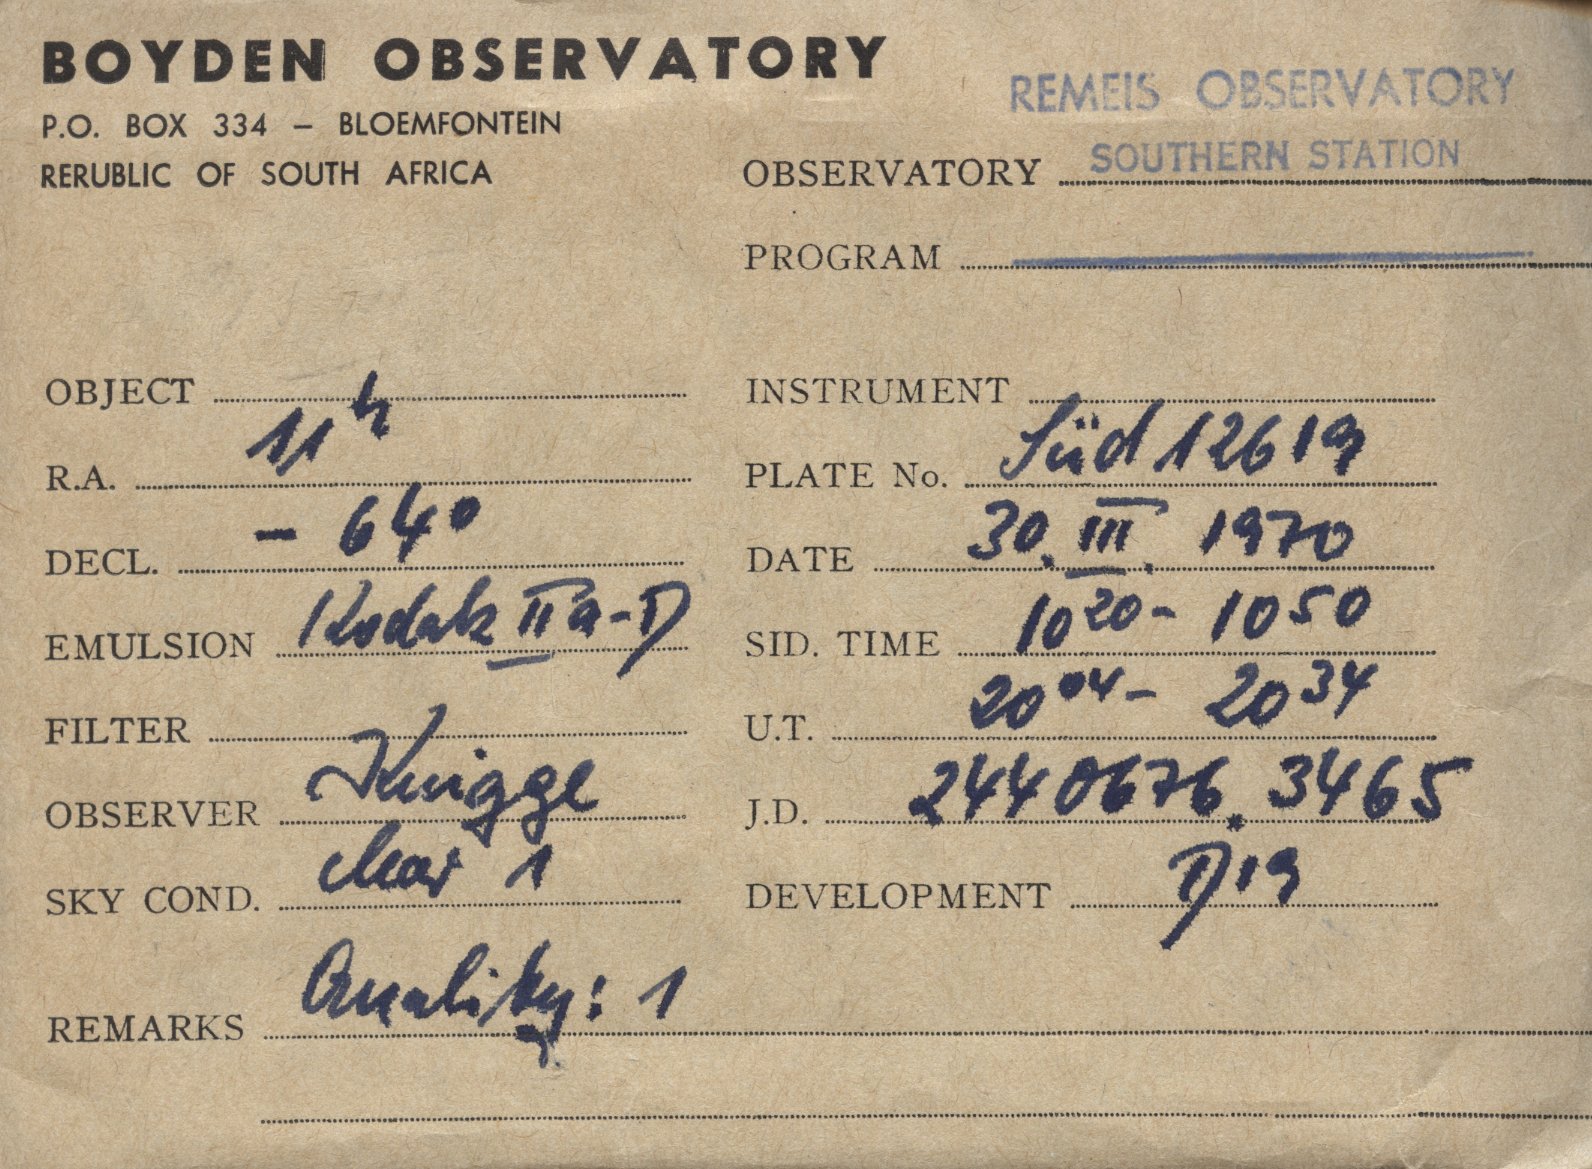 BOYDEN OBSERVATORY
P.O. BOX 334 – BLOEMFONTEIN
RERUBLIC OF SOUTH AFRICA
REMEIS OBSERVATORY
SOUTHERN STATION
OBSERVATORY
PROGRAM
OBJECT
R.A. 11h
DECL. - 64°
EMULSION Kodak IIa-D
FILTER
OBSERVER Knigge
SKY COND. clear 1
REMARKS Quality: 1
INSTRUMENT
PLATE No. Süd 12619
DATE 30. III. 1970
SID. TIME 10 20 - 10 50
U.T. 20 04 - 20 34
J.D. 2440676.3465
DEVELOPMENT D19